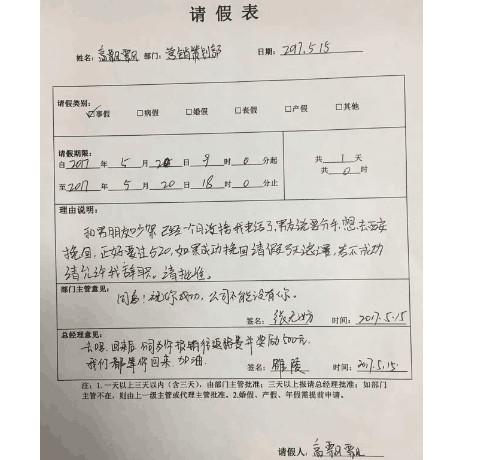 请假表
姓名：高飘飘 部门：营销策划部 日期：2017.5.15
请假类别：
☑事假 □病假 □婚假 □丧假 □产假 □其他
请假期限：
自2017年5月20日9时0分起 共1天
至2017年5月20日18时0分止 共0时
理由说明：
和男朋友吵架已经一个月没接我电话了，男友说要分手，想去西安
挽回，正好要过520，如果成功挽回请假3天，若不成功
请允许我辞职。请批准。
部门主管意见：
同意！祝你成功，公司不能没有你。
签名：张 时间：2017.5.15
总经理意见：
去吧，回来后公司给你报销往返路费并奖励500元。
我们都等你回来，加油。
签名： 时间：2017.5.15.
注：1.一天以上三天以内（含三天），由部门主管批准；三天以上报请总经理批准；如部门
主管不在，则由上一级主管或代理主管批准。2.婚假、产假、年假需提前申请。
请假人：高飘飘